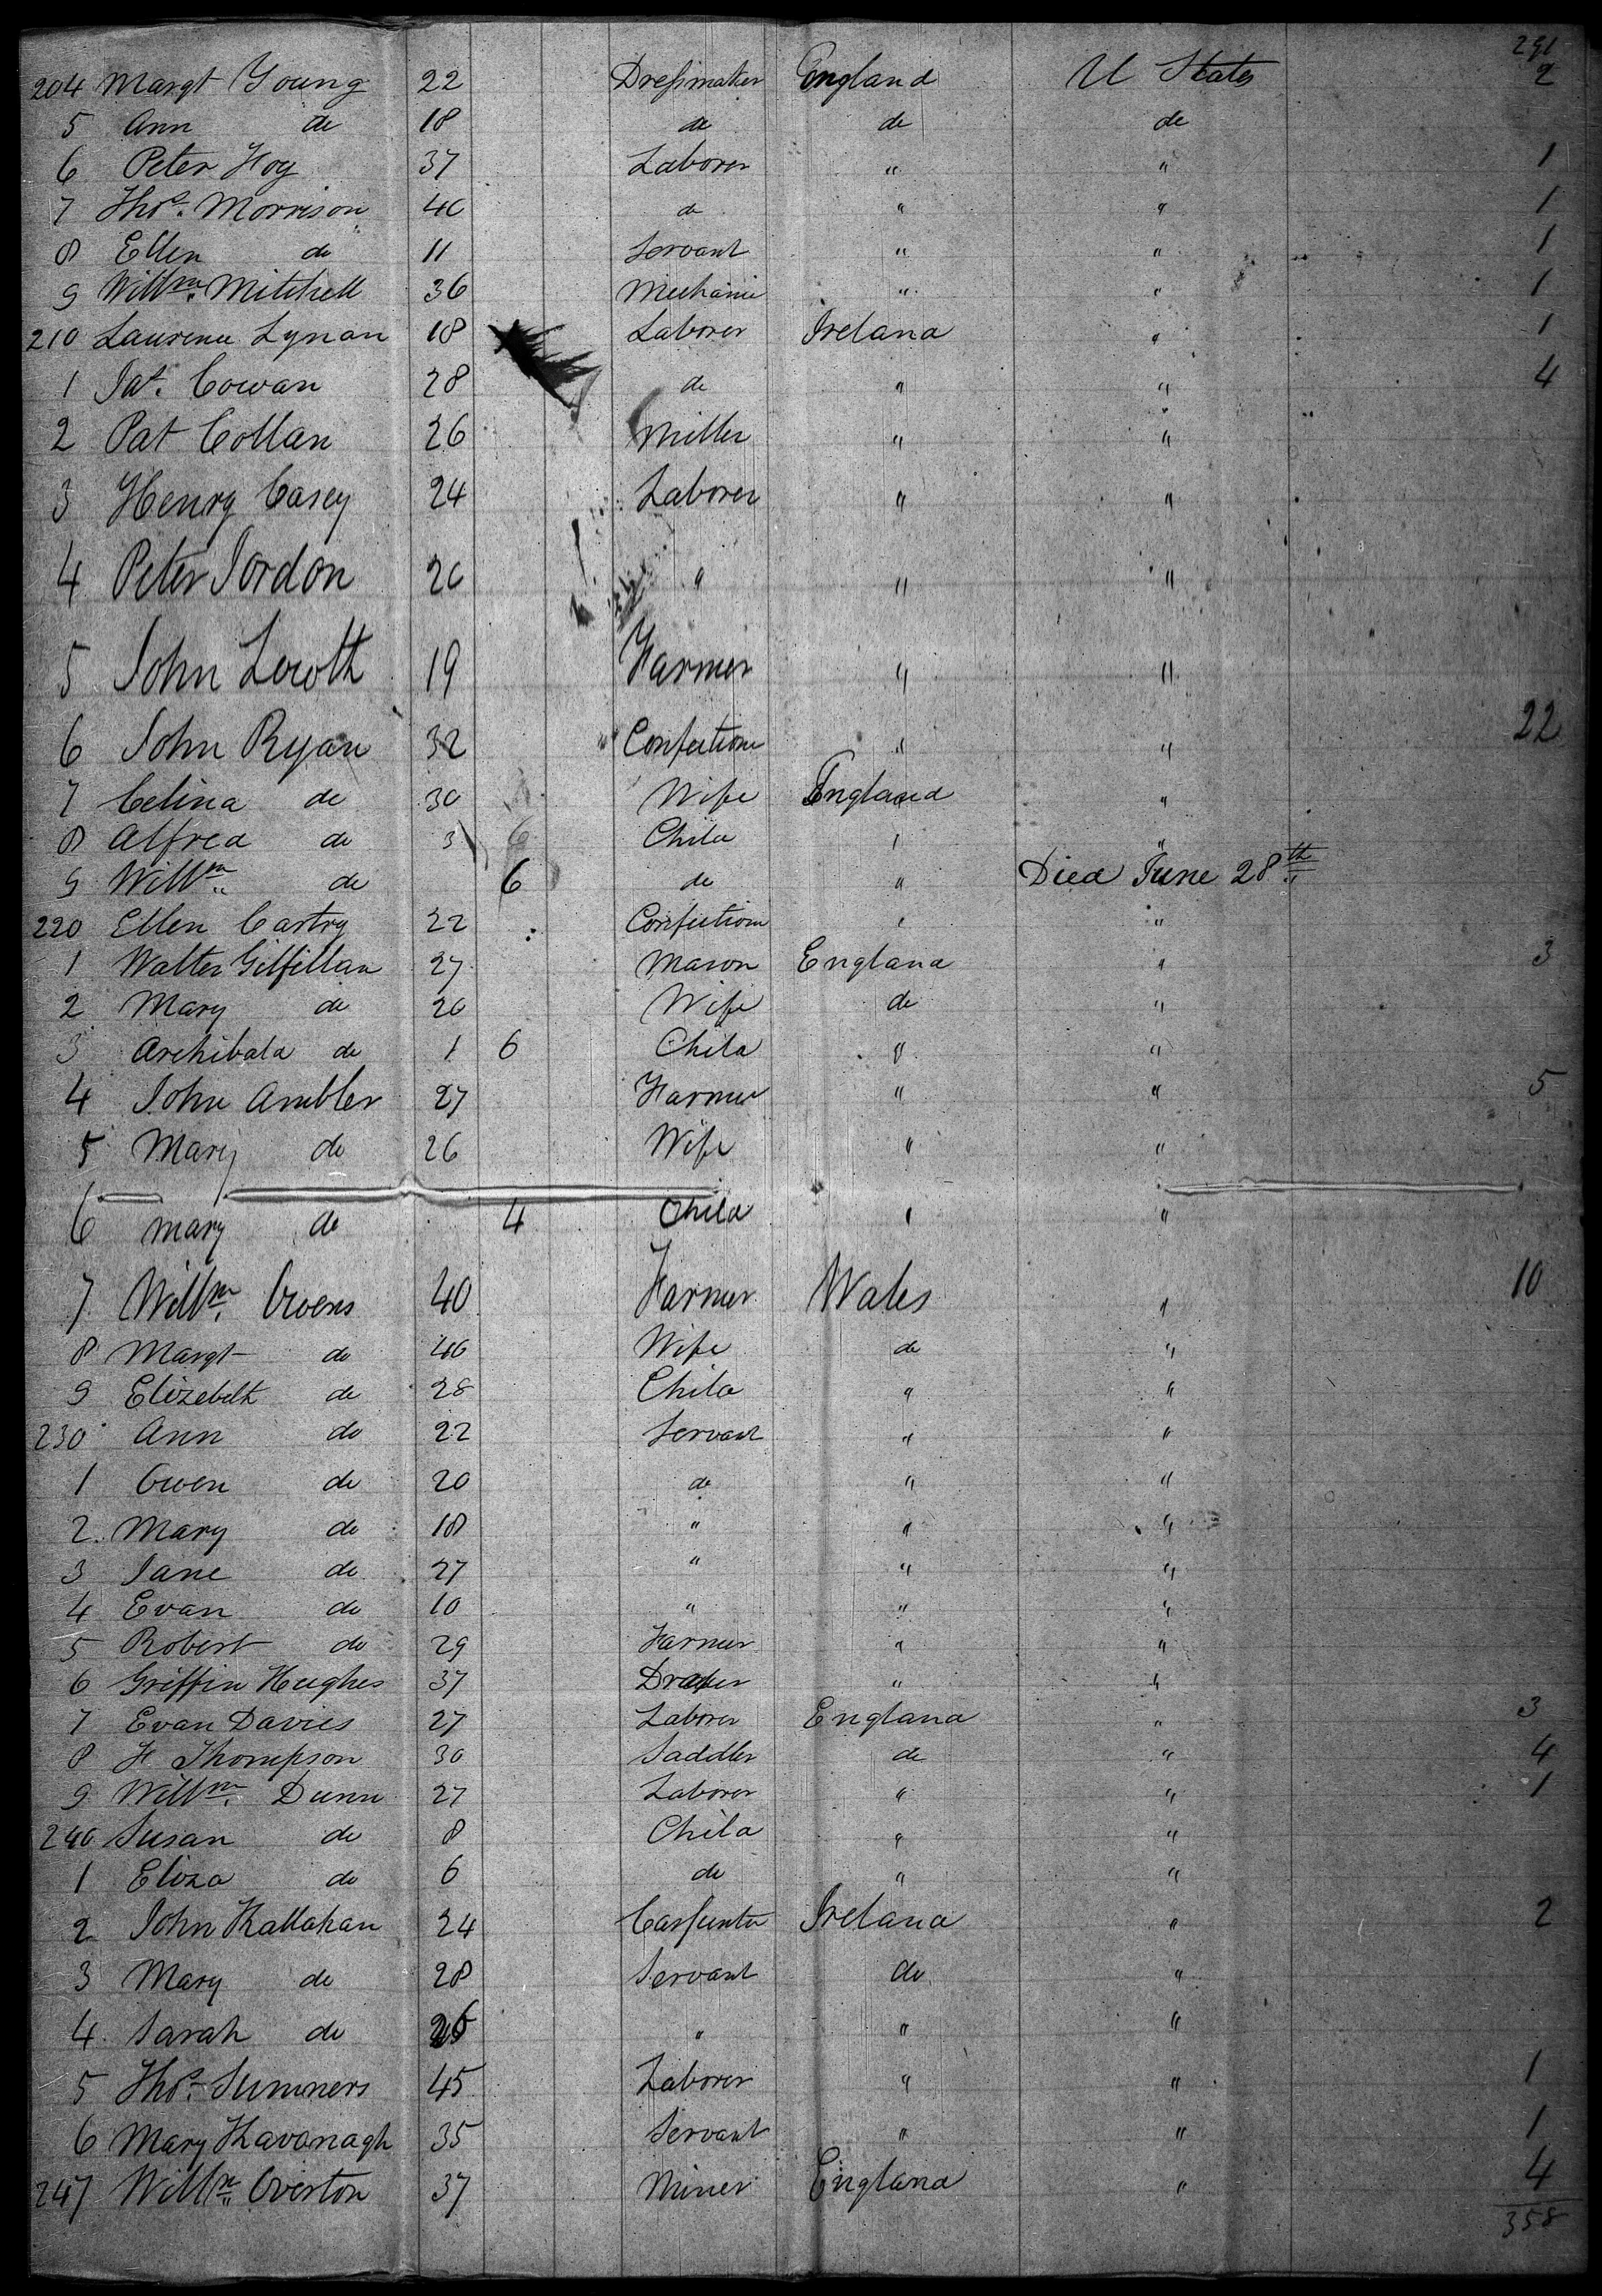 291
204 Margt Young 22 Dressmaker England U States 2
5 Ann do 18 do do do
6 Peter Hoy 37 Laborer " " 1
7 Thos. Morrison 40 do " " 1
8 Ellen do 11 Servant " " 1
9 Willm. Mitchell 36 Mechanic " " 1
210 Laurence Lynan 18 Laborer Ireland " 1
1 Jas. Cowan 28 do " " 4
2 Pat Collan 26 Miller " "
3 Henry Casey 24 Laborer " "
4 Peter Jordon 20 " " "
5 John Lowth 19 Farmer " "
6 John Ryan 32 Confectioner " " 22
7 Celina do 30 Wife England "
8 Alfred do 3 Child " "
9 Willm. do 6 do " Died June 28th
220 Ellen 22 Confectioner " "
1 Walter Gilfillan 27 Mason England " 3
2 Mary do 20 Wife do "
3 Archibald do 1 6 Child " "
4 John Ambler 27 Farmer " " 5
5 Mary do 26 Wife " "
6 Mary do 4 Child " "
7 Willm. Owens 40 Farmer Wales " 10
8 Margt do 46 Wife do "
9 Elizebeth do 28 Child " "
230 Ann do 22 Servant " "
1 Owen do 20 do " "
2 Mary do 18 " " "
3 Jane do 27 " " "
4 Evan do 10 " " "
5 Robert do 29 Farmer " "
6 Griffin Hughes 37 Draper " "
7 Evan Davies 27 Laborer England " 3
8 H Thompson 30 Saddler do " 4
9 Willm. Dunn 27 Laborer " " 1
240 Susan do 8 Child " "
1 Eliza do 6 do " "
2 John Kallahan 24 Carpenter Ireland " 2
3 Mary do 28 Servant do "
4 Sarah do " " "
5 Thos. Summers 45 Laborer " " 1
6 Mary Kavanagh 35 Servant " " 1
247 Willm. Overton 37 Miner England " 4
358